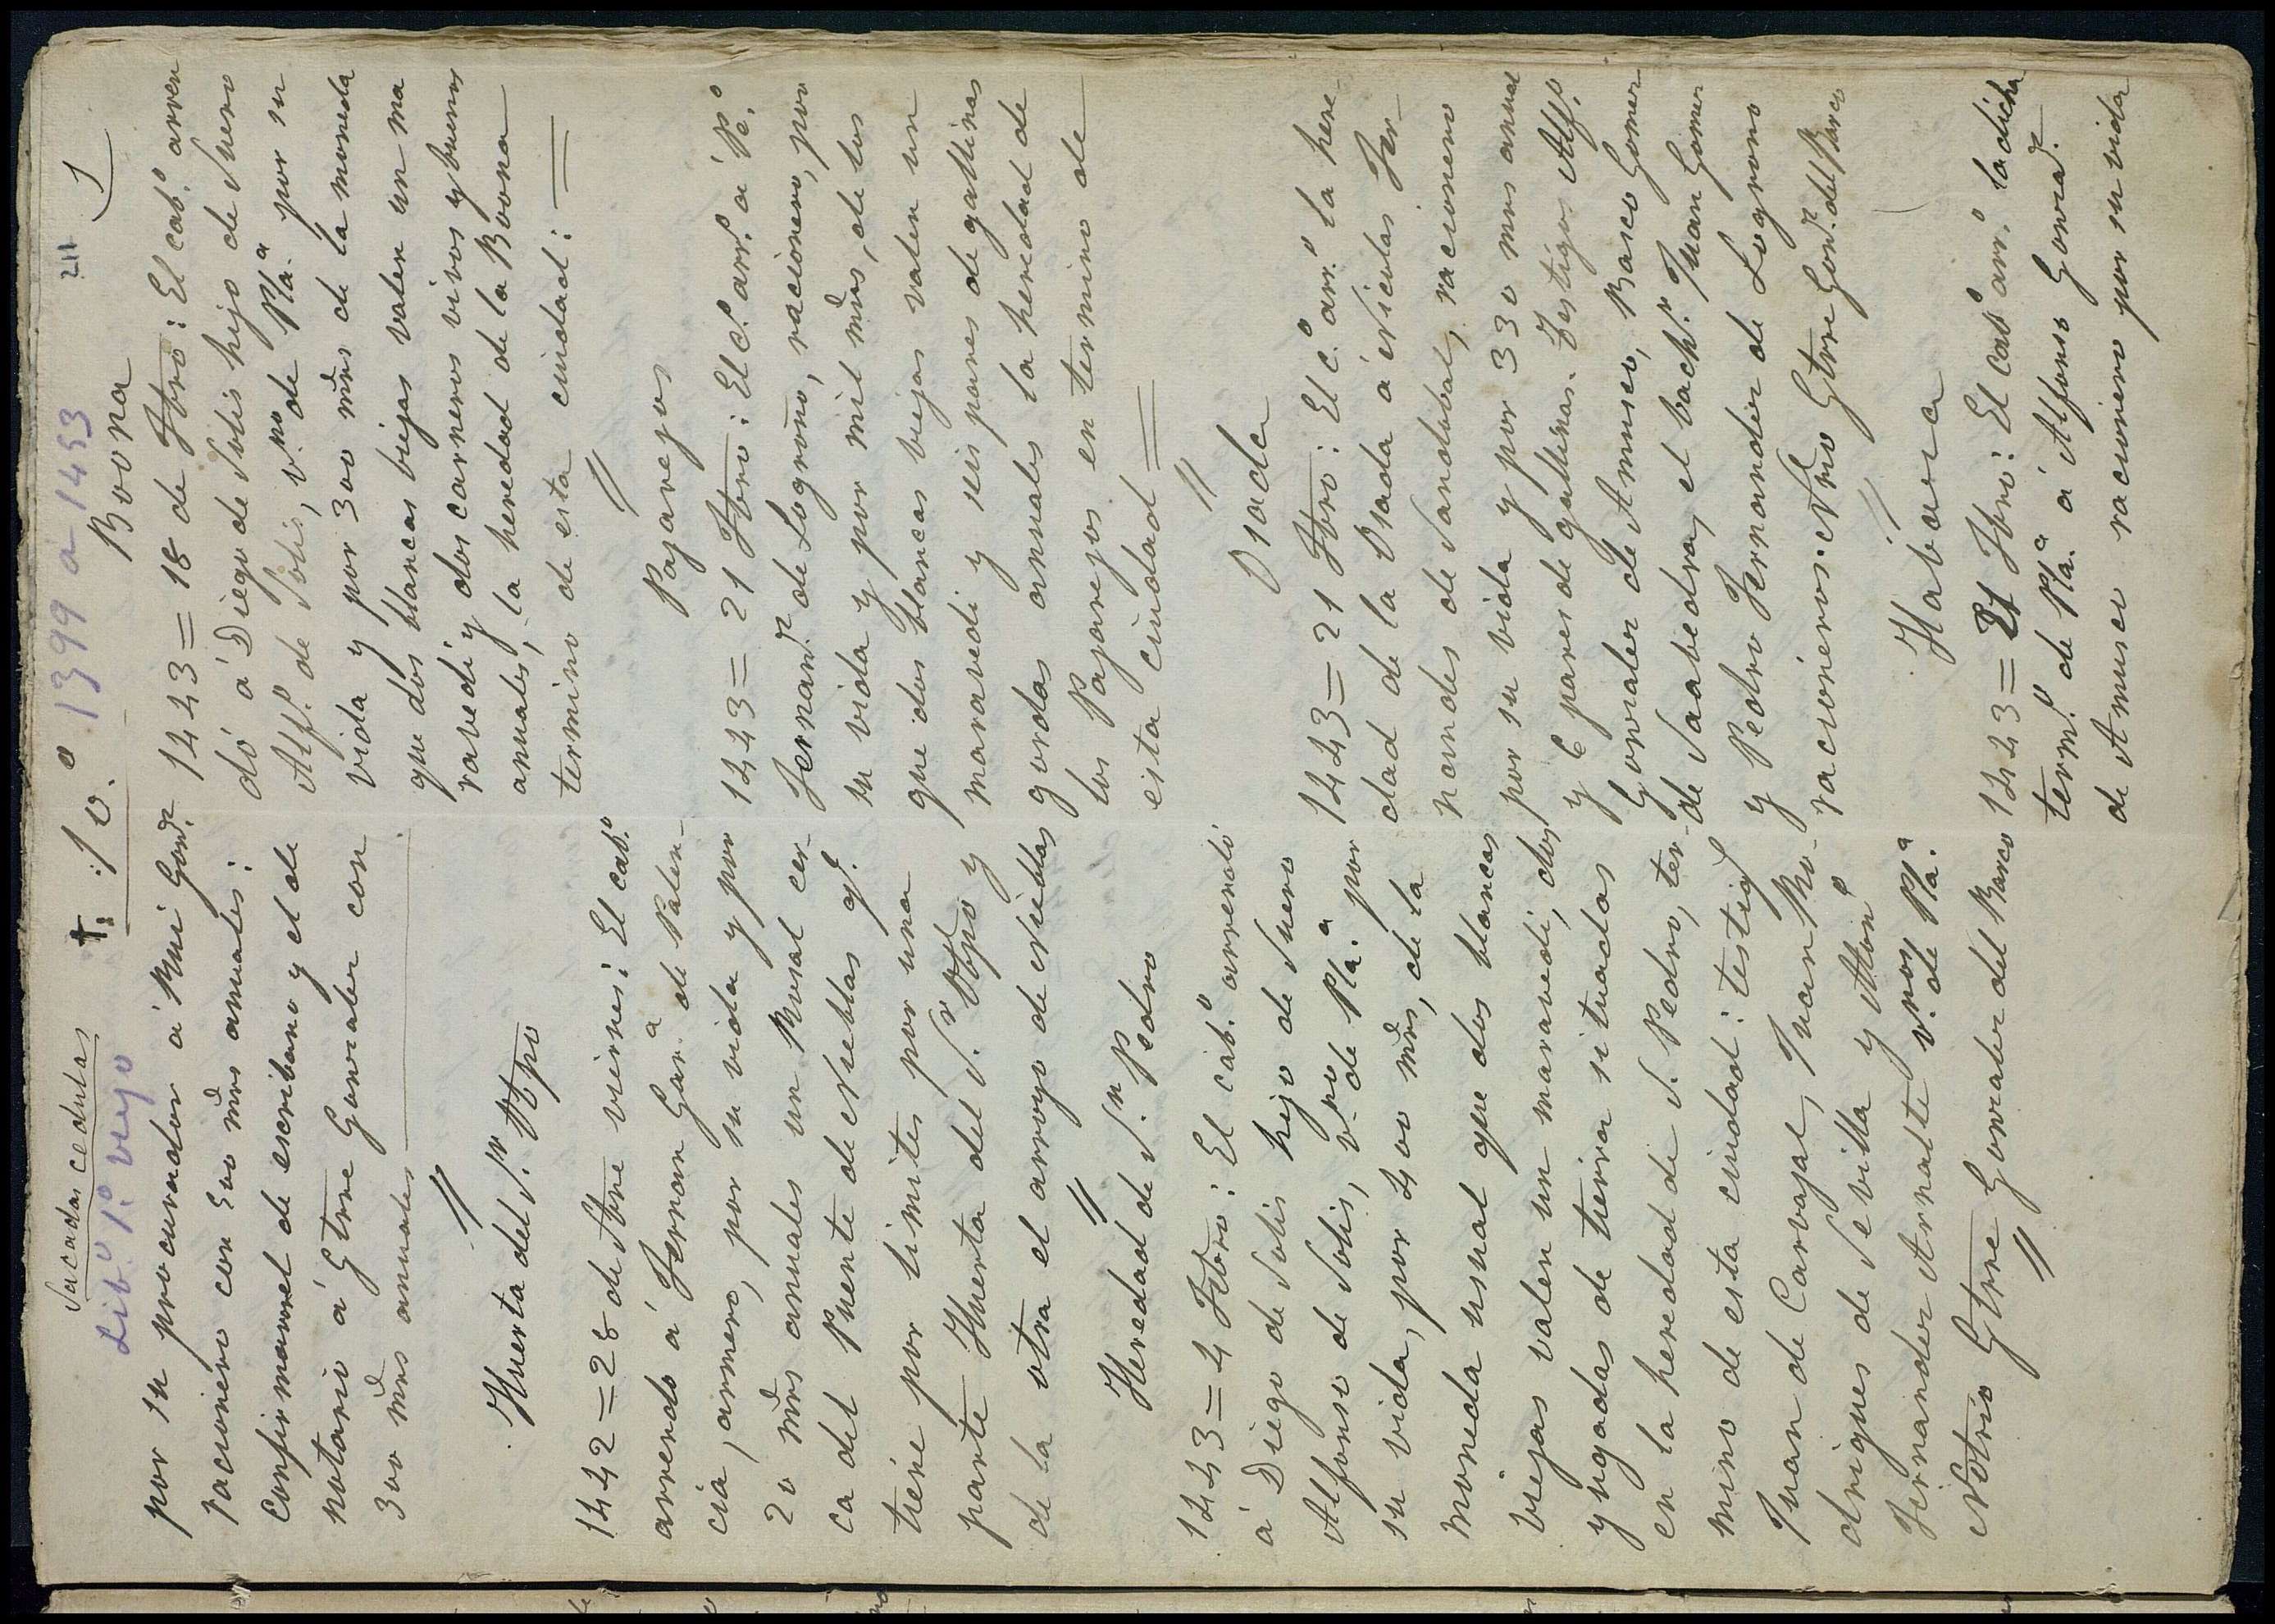 Sacadas cedulas
Lib.º 1.º viejo
t. 1º.
1399 a 1453
211
1
por su procurador á Rui Gonz.
racionero con 500 mrs anuales:
confirmaron el de escribano y el de
notario á Gtrre Gonzalez con
300 mrs anuales
Huerta del S.r Obpo
1442 = 28 de Nbre viernes: El cab.º
arrendó á Ferran Gar.a de Palen-
cia, armero, por su vida y por
20 mrs anuales un Moral cer-
ca del Puente de Nieblas q.e
tiene por limites por una
parte Huerta del S.r Obpo y
de la otra el arroyo de Nieblas
Heredad de S.n Pedro
1443 = 4 Fbro: El cab.º arrendó
á Diego de Solis hijo de Suero
Alfonso de Solis, v.no de Pla.a por
su vida, por 400 mrs, de la
moneda usual que dos blancas
viejas valen un maravedi, dos
yugadas de tierra situadas
en la heredad de S. Pedro, ter-
mino de esta ciudad: testigos
Juan de Carvajal, Juan Ro-
drigues de Sevilla y Alonº
Fernandez Arnalte v.nos de Pla.a
Notrio Gtrre Gonzalez del Barco
Boona
1443 = 18 de Fbro: El cab.º arren
dó á Diego de Solis hijo de Suero
Alf.º de Solis, v.no de Pla.a por su
vida y por 300 mrs de la moneda
que dos blancas viejas valen un ma
ravedi y dos carneros vivos y buenos
anuales, la heredad de la Boona
termino de esta ciudad:
Pajarejos
1443 = 21 Fbro: El c.º arr.º á P.º
Fernand.z de Logroño, racionero, por
su vida y por mil mrs, de los
que dos blancas viejas valen un
maravedi y seis pares de gallinas
gordas anuales la heredad de
los Pajarejos en termino de
esta ciudad
Osada
1443 = 21 Fbro: El c.º arr.º la here-
dad de la Osada á Nicolas Fer-
nandes de Sandobal, racionero
por su vida y por 330 mrs anual
y 6 pares de gallinas. Testigos Alf.º
Gonzalez de Amusco, Basco Gomez
de Saabedra, el bach.r Juan Gomez
y Pedro Fernandez de Logrono
racioneros. Nrio Gtrre Gonz. del Barco
Habaza
1443 = 21 Fbro: El cab.º arr.º la dicha
term.º de Pla.a á Alfonso Gonzal.z
de Amusco racionero por su vida